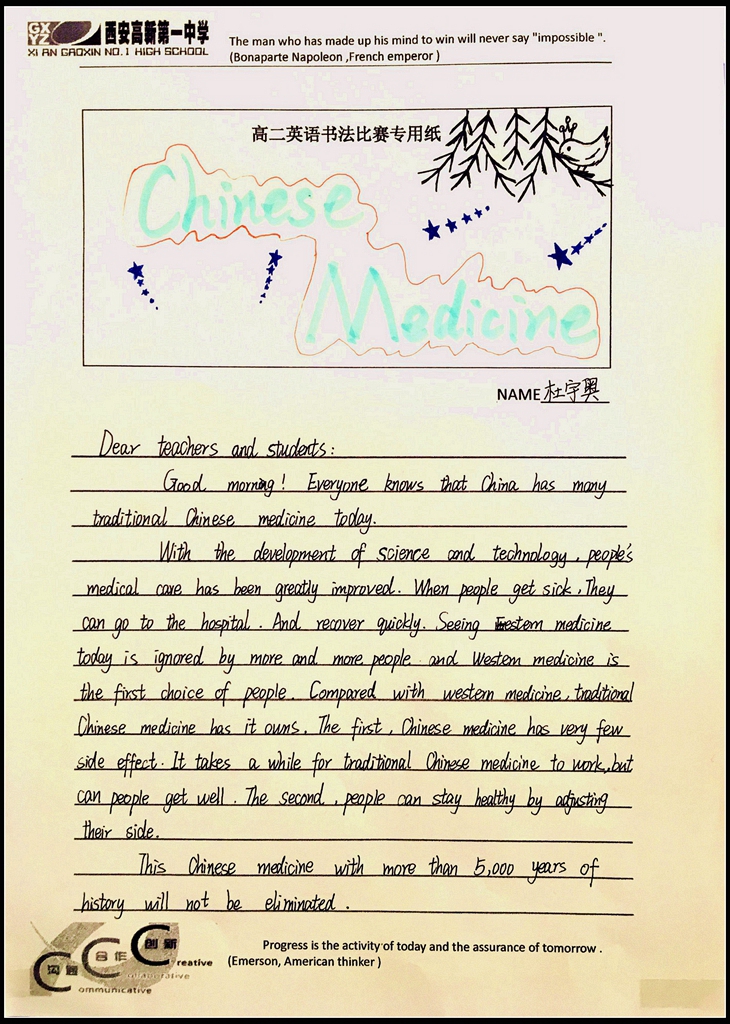 GX
YZ
西安高新第一中学
XI AN GAOXIN NO.1 HIGH SCHOOL
The man who has made up his mind to win will never say "impossible ".
(Bonaparte Napoleon ,French emperor )
高二英语书法比赛专用纸
Chinese
Medicine
NAME 杜宇奥
Dear teachers and students:
Good morning! Everyone knows that China has many
traditional Chinese medicine today.
With the development of science and technology, people's
medical care has been greatly improved. When people get sick, They
can go to the hospital. And recover quickly. Seeing Eestern medicine
today is ignored by more and more people and Western medicine is
the first choice of people. Compared with western medicine, traditional
Chinese medicine has it owns. The first, Chinese medicine has very few
side effect. It takes a while for traditional Chinese medicine to work, but
can people get well. The second, people can stay healthy by adjusting
their side.
This Chinese medicine with more than 5,000 years of
history will not be eliminated.
Progress is the activity of today and the assurance of tomorrow .
(Emerson, American thinker )
创新
合作
沟通
Creative
Collaborative
Communicative